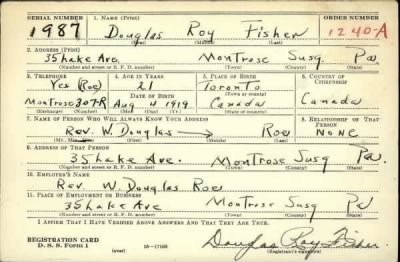 SERIAL NUMBER 1. NAME (Print) ORDER NUMBER
1987 Douglas Roy Fisher 1240-A
(First) (Middle) (Last)
2. ADDRESS (Print)
35 Lake Ave. Montrose Susq Pa
(Number and street or R. F. D. number) (Town) (County) (State)
3. TELEPHONE 4. AGE IN YEARS 5. PLACE OF BIRTH 6. COUNTRY OF CITIZENSHIP
Yes (Roe) 21 Toronto
DATE OF BIRTH (Town or county)
Montrose 307-R Aug 4 1919 Canada Canada
(Exchange) (Number) (Mo.) (Day) (Yr.) (State or country)
7. NAME OF PERSON WHO WILL ALWAYS KNOW YOUR ADDRESS 8. RELATIONSHIP OF THAT PERSON
Rev. W. Douglas Roe None
(Mr., Mrs., Miss) (First) (Middle) (Last)
9. ADDRESS OF THAT PERSON
35 Lake Ave. Montrose Susq Pa.
(Number and street or R. F. D. number) (Town) (County) (State)
10. EMPLOYER'S NAME
Rev. W. Douglas Roe
11. PLACE OF EMPLOYMENT OR BUSINESS
35 Lake Ave Montrose Susq Pa
(Number and street or R. F. D. number) (Town) (County) (State)
I AFFIRM THAT I HAVE VERIFIED ABOVE ANSWERS AND THAT THEY ARE TRUE.
REGISTRATION CARD
D. S. S. Form 1 (over) 16-17105 Douglas Roy Fisher.
(Registrant's signature)